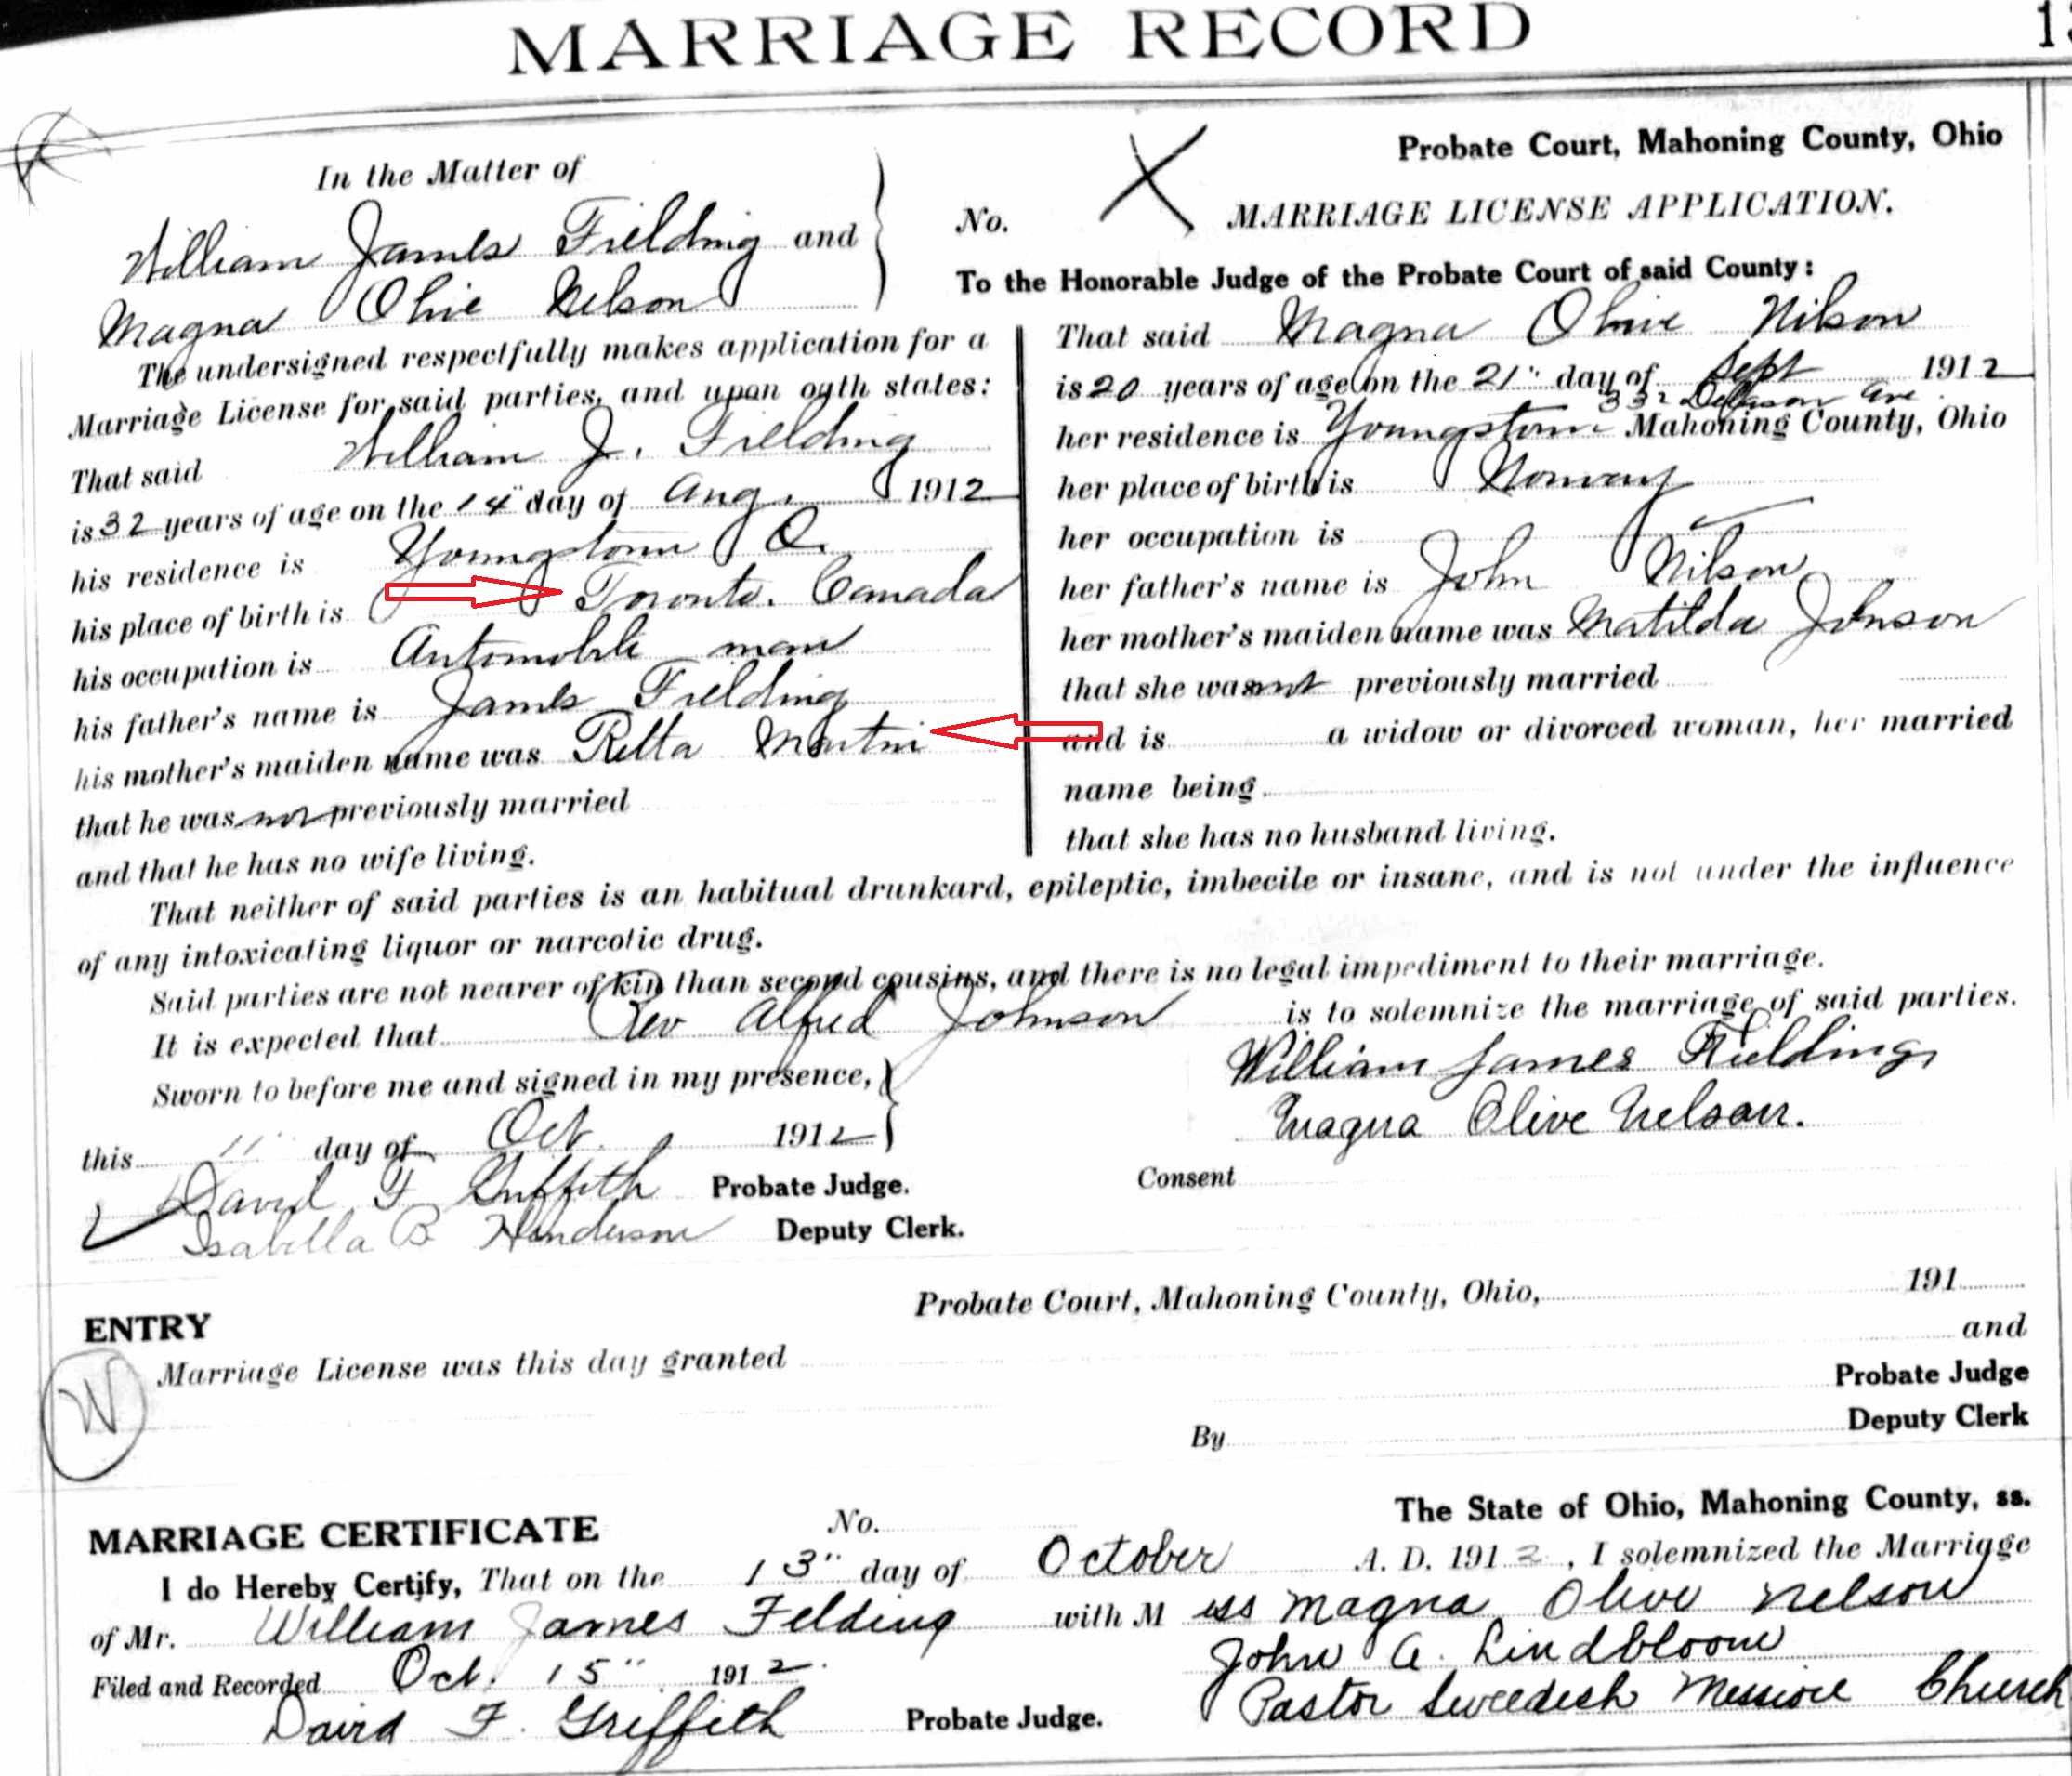 MARRIAGE RECORD
In the Matter of
William James Fielding and
Magna Olive Nelson
The undersigned respectfully makes application for a
Marriage License for said parties, and upon oath states:
That said William J. Fielding
is 32 years of age on the 14" day of Aug. 1912
his residence is Youngstown O.
his place of birth is Toronto, Canada
his occupation is Automobile man
his father's name is James Fielding
his mother's maiden name was Retta Martin
that he was not previously married
and that he has no wife living.
Probate Court, Mahoning County, Ohio
No. MARRIAGE LICENSE APPLICATION.
To the Honorable Judge of the Probate Court of said County:
That said Magna Olive Nilson
is 20 years of age on the 21" day of Sept 1912
332 Ave
her residence is Youngstown Mahoning County, Ohio
her place of birth is Norway
her occupation is
her father's name is John Nilson
her mother's maiden name was Matilda Johnson
that she was not previously married
and is a widow or divorced woman, her married
name being
that she has no husband living.
That neither of said parties is an habitual drunkard, epileptic, imbecile or insane, and is not under the influence
of any intoxicating liquor or narcotic drug.
Said parties are not nearer of kin than second cousins, and there is no legal impediment to their marriage.
It is expected that Rev Alfred Johnson is to solemnize the marriage of said parties.
Sworn to before me and signed in my presence,
this 11" day of Oct. 1912
David F Griffith Probate Judge.
Isabella B Henderson Deputy Clerk.
William James Fielding
Magna Olive Nelson.
Consent
ENTRY
Probate Court, Mahoning County, Ohio, 191
Marriage License was this day granted and
Probate Judge
By Deputy Clerk
W
MARRIAGE CERTIFICATE No. The State of Ohio, Mahoning County, ss.
I do Hereby Certify, That on the 13" day of October A. D. 1912, I solemnized the Marriage
of Mr. William James Felding with Miss Magna Olive Nelson
Filed and Recorded Oct. 15" 1912. John A. Lindbloom
David F. Griffith Probate Judge. Pastor Sweedesh Mission Church